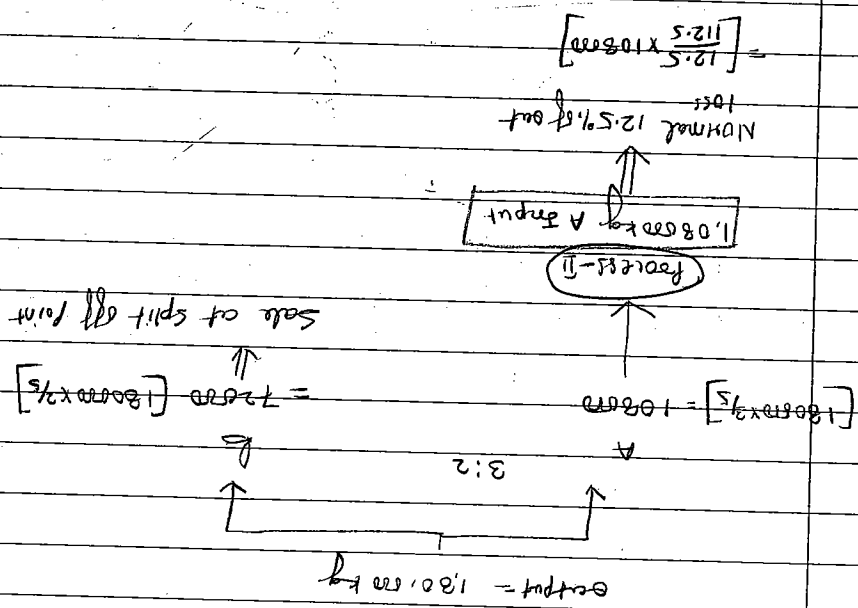 Output = 1,80,000 kg
3:2
A B
[180000 × 3/5] = 108000 = 72000 [180000 × 2/5]
Sale at split off Point
Process-II
1,08000 kg A Input
Normal 12.5% of out
loss
= [12.5/112.5 × 108000]